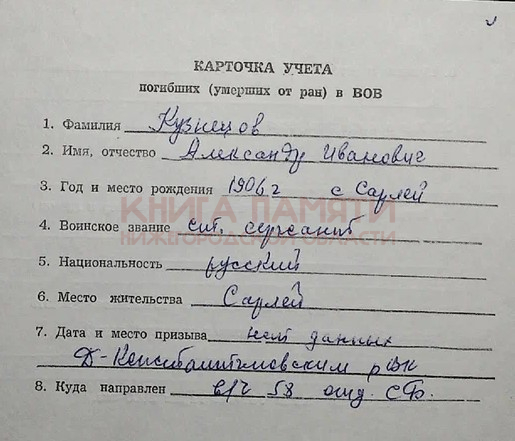 КАРТОЧКА УЧЕТА
погибших (умерших от ран) в ВОВ
1. Фамилия Кузнецов
2. Имя, отчество Александр Иванович
3. Год и место рождения 1906 г с Сарлей
КНИГА ПАМЯТИ
4. Воинское звание ст. сержант
НИЖЕГОРОДСКОЙ ОБЛАСТИ
5. Национальность русский
6. Место жительства Сарлей
7. Дата и место призыва нет данных
Д-Константиновским РВК
8. Куда направлен в/ч 58 СФ.